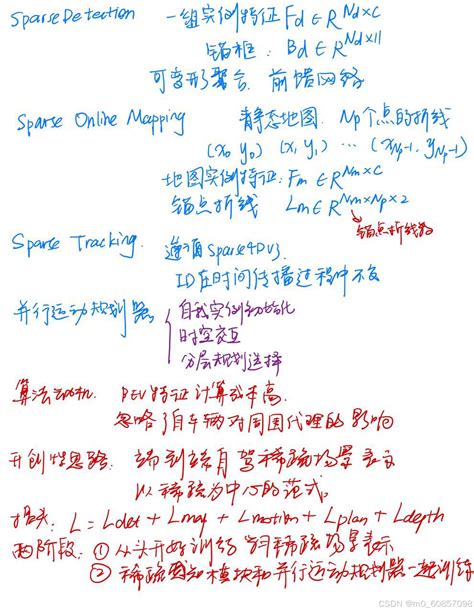 SparseDetection 一组实例特征 Fd ∈ R^Nd×C
锚框: Bd ∈ R^Nd×11
可变形聚合. 前馈网络
Sparse Online Mapping 静态地图. Np个点的折线
(x0 y0) (x1, y1) ... (xNp-1, yNp-1)
地图实例特征: Fm ∈ R^Nm×C
锚点折线 Lm ∈ R^Nm×Np×2
锚点折线数
Sparse Tracking. 遵循Sparse4Dv3
ID在时间传播过程中不变
并行运动规划器
自我实例初始化
时空交互
分层规划选择
算法动机. BEV特征计算成本高.
忽略了自车辆对周围代理的影响
开创性思路: 端到端自驾稀疏场景表示
以稀疏为中心的范式.
损失: L = Ldet + Lmap + Lmotion + Lplan + Ldepth
两阶段: ① 从头开始训练 学习稀疏场景表示
② 稀疏感知模块和并行运动规划器一起训练
CSDN @m0_60857098